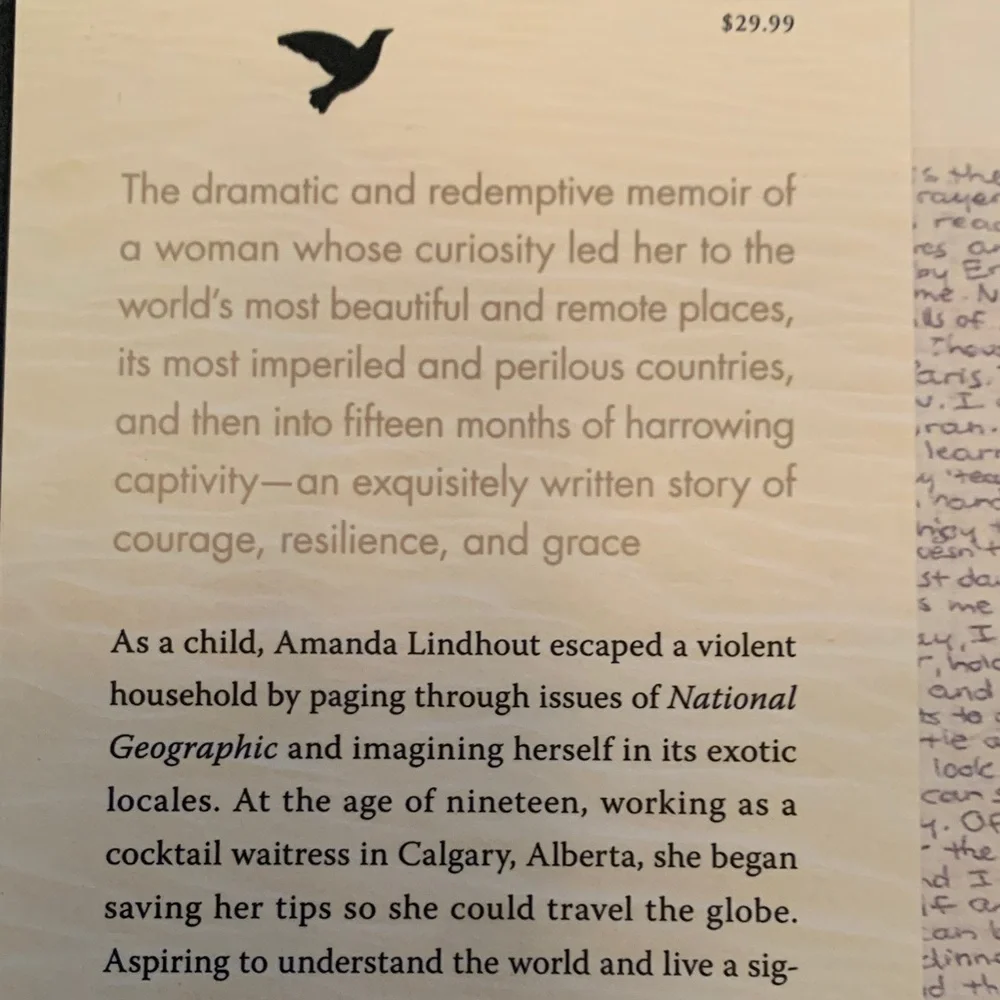 $29.99
The dramatic and redemptive memoir of
a woman whose curiosity led her to the
world's most beautiful and remote places,
its most imperiled and perilous countries,
and then into fifteen months of harrowing
captivity—an exquisitely written story of
courage, resilience, and grace
As a child, Amanda Lindhout escaped a violent
household by paging through issues of National
Geographic and imagining herself in its exotic
locales. At the age of nineteen, working as a
cocktail waitress in Calgary, Alberta, she began
saving her tips so she could travel the globe.
Aspiring to understand the world and live a sig-
the
of
learn
st
s me
I
and
to
look
the
I
if